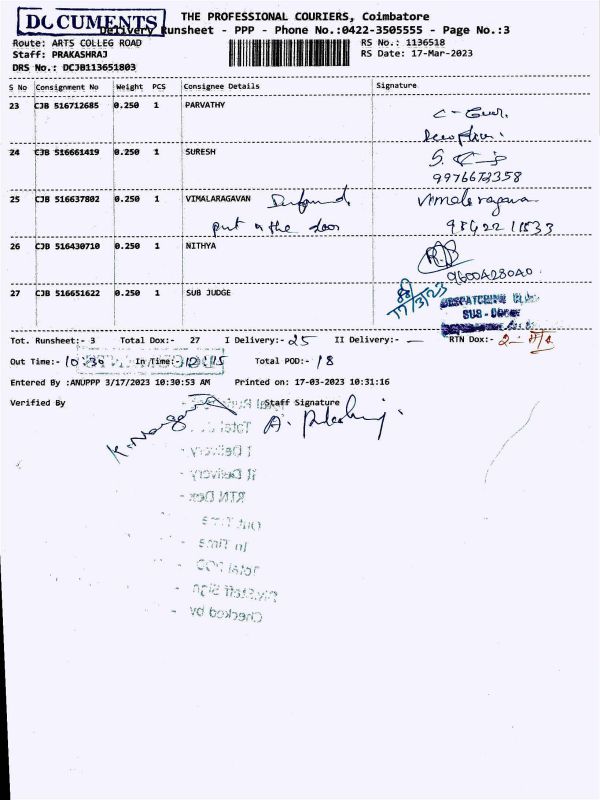 DOCUMENTS
THE PROFESSIONAL COURIERS, Coimbatore
Delivery Runsheet - PPP - Phone No.:0422-3505555 - Page No.:3
Route: ARTS COLLEG ROAD
RS No.: 1136518
Staff: PRAKASHRAJ
RS Date: 17-Mar-2023
DRS No.: DCJB113651803
S No Consignment No Weight PCS Consignee Details Signature
23 CJB 516712685 0.250 1 PARVATHY
24 CJB 516661419 0.250 1 SURESH
25 CJB 516637802 0.250 1 VIMALARAGAVAN
put in the door
26 CJB 516430710 0.250 1 NITHYA
9600428040
27 CJB 516651622 0.250 1 SUB JUDGE
17/3/23
Tot. Runsheet:- 3 Total Dox:- 27 I Delivery:- 25 II Delivery:- — RTN Dox:- 2
Out Time:- 10:30 In Time:- 12:15 Total POD:- 18
Entered By :ANUPPP 3/17/2023 10:30:53 AM Printed on: 17-03-2023 10:31:16
Verified By Staff Signature
I Delivery -
II Delivery -
RTN Dox -
Out Time
In Time -
Total POD -
Div.Staff Sign -
Checked by -